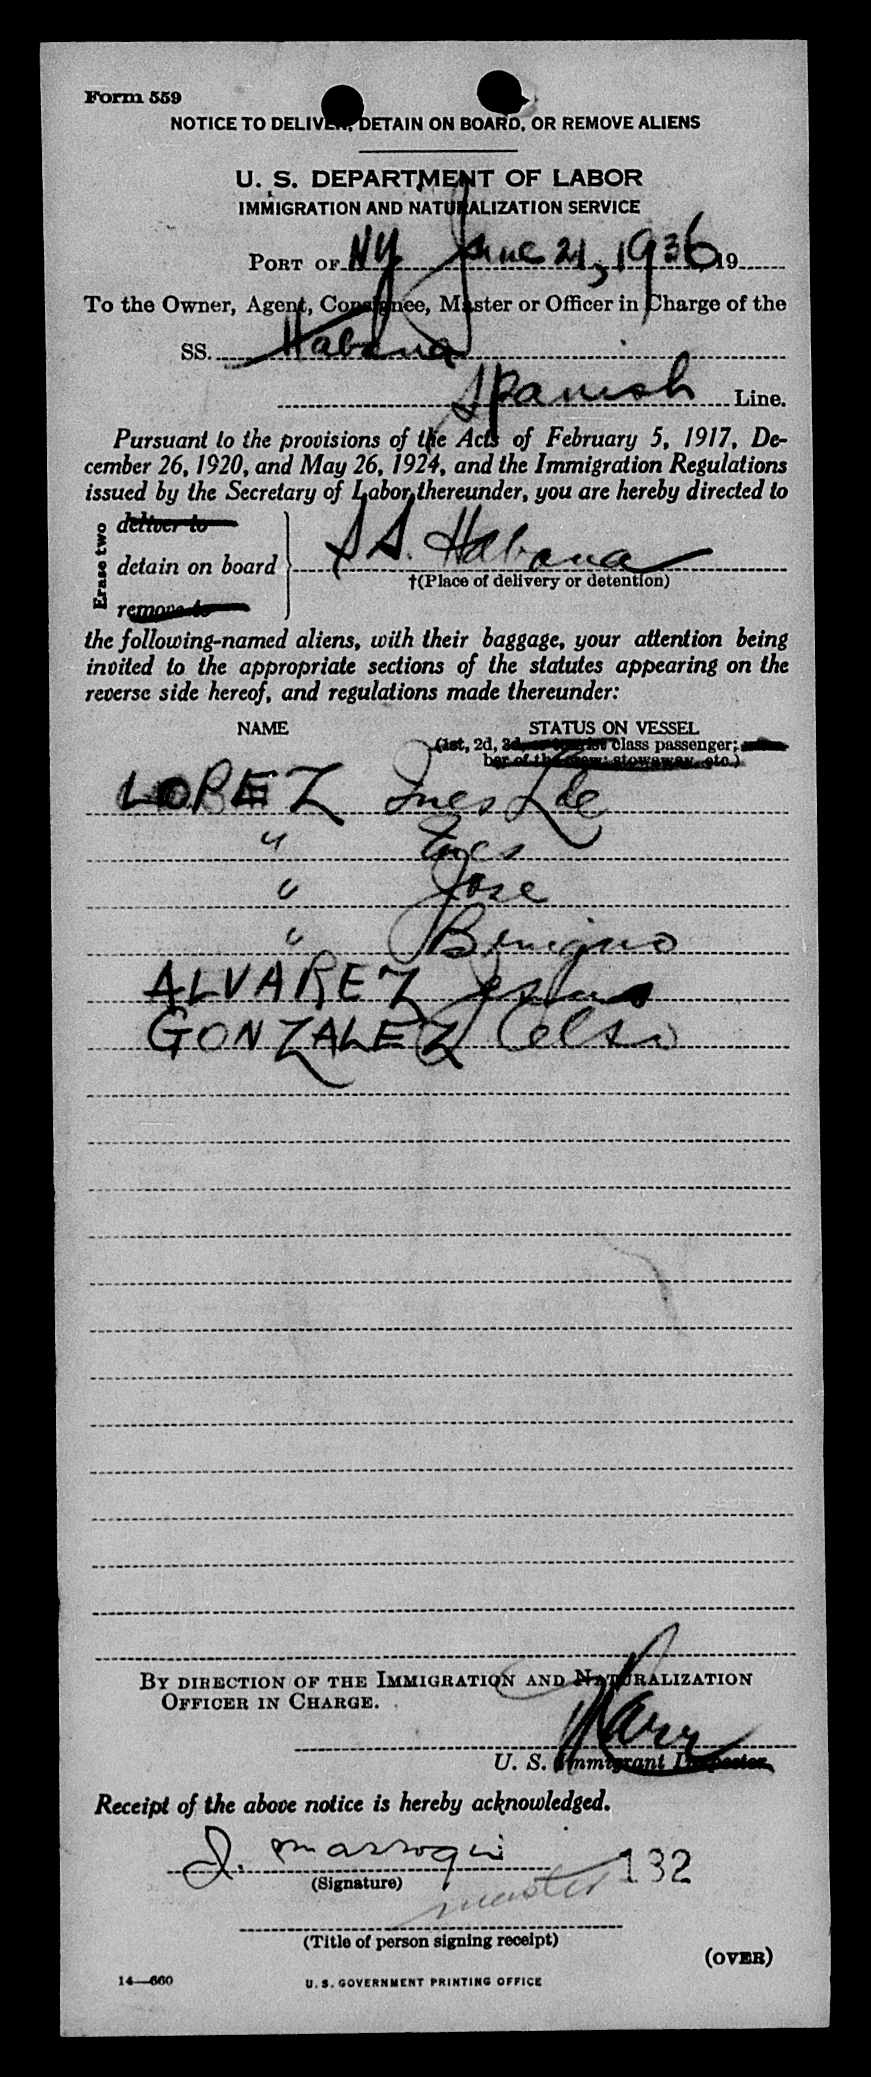 Form 559
NOTICE TO DELIVER, DETAIN ON BOARD, OR REMOVE ALIENS
U. S. DEPARTMENT OF LABOR
IMMIGRATION AND NATURALIZATION SERVICE
PORT OF NY June 21, 1936 19
To the Owner, Agent, Consignee, Master or Officer in Charge of the
SS. Habana
Spanish Line.
Pursuant to the provisions of the Acts of February 5, 1917, De-
cember 26, 1920, and May 26, 1924, and the Immigration Regulations
issued by the Secretary of Labor thereunder, you are hereby directed to
Erase two
deliver to
detain on board SS. Habana
†(Place of delivery or detention)
remove to
the following-named aliens, with their baggage, your attention being
invited to the appropriate sections of the statutes appearing on the
reverse side hereof, and regulations made thereunder:
NAME STATUS ON VESSEL
(1st, 2d, 3d, or tourist class passenger; mem-
ber of the crew; stowaway, etc.)
LOPEZ Ines L de
" Ines
" Jose
" Benigno
ALVAREZ Jesus
GONZALEZ Celso
BY DIRECTION OF THE IMMIGRATION AND NATURALIZATION
OFFICER IN CHARGE.
U. S. Immigrant Inspector.
Receipt of the above notice is hereby acknowledged.
(Signature) 132
master
(Title of person signing receipt)
(OVER)
14—660 U. S. GOVERNMENT PRINTING OFFICE